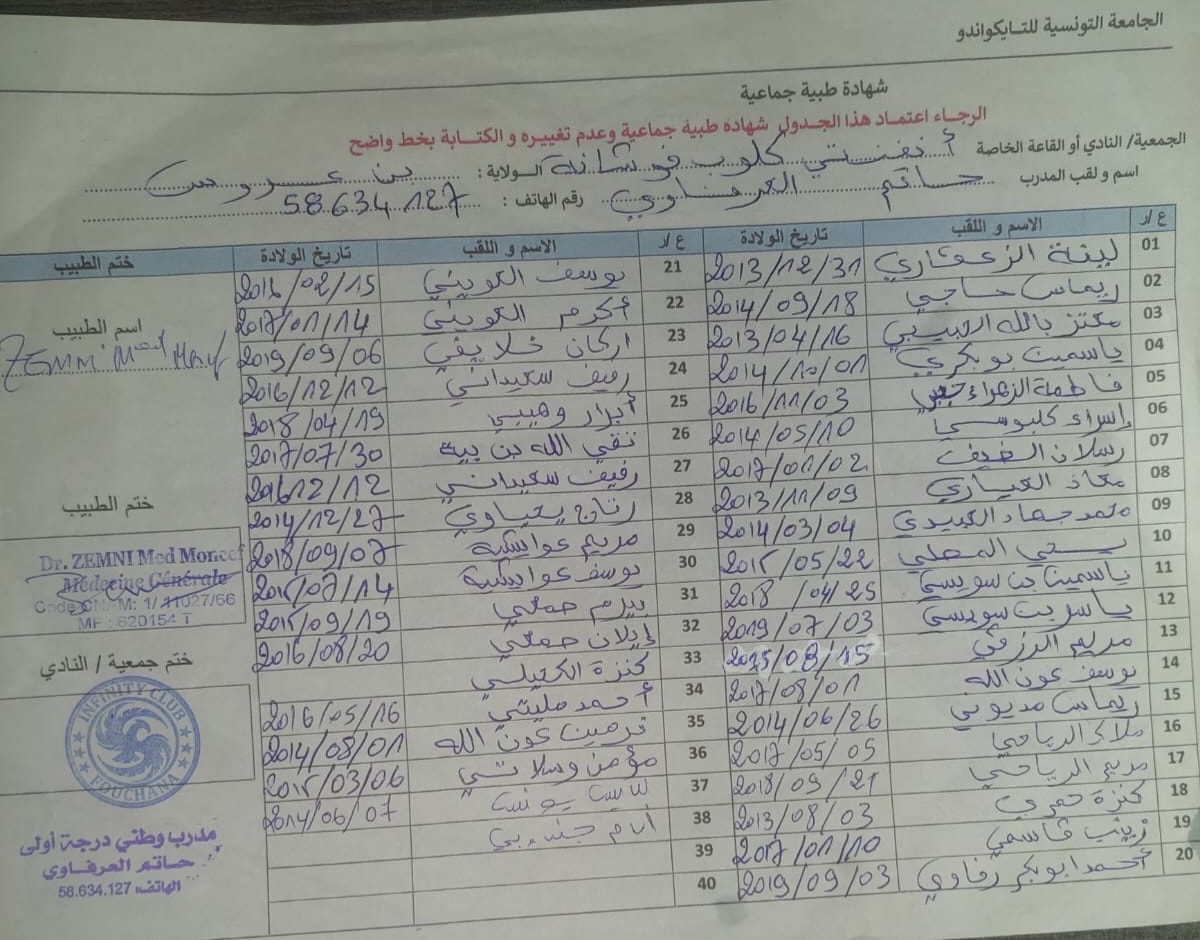 الجامعة التونسية للتايكواندو
شهادة طبية جماعية
الرجاء اعتماد هذا الجدول شهادة طبية جماعية وعدم تغييره و الكتابة بخط واضح
الجمعية/ النادي أو القاعة الخاصة أنفنتي كلوب فوشانة الولاية : بن عروس
اسم و لقب المدرب حاتم العرفاوي رقم الهاتف : 58.634.127
ع /ر الاسم و اللقب تاريخ الولادة ع /ر الاسم و اللقب تاريخ الولادة ختم الطبيب
01 لينة الزعفاري 2013/12/31
02 ريماس حاجي 2014/09/18
03 معتز بالله 2013/04/16
04 ياسمين بوبكري 2014/10/01
05 فاطمة الزهراء 2016/11/03
06 إسراء كلبوسي 2014/05/10
07 رسلان الضيف 2017/01/02
08 معاذ العياري 2013/11/09
09 محمد جهاد العبيدي 2014/03/04
10 يحي المحلي 2015/05/22
11 ياسمين بن سويسي 2018/04/25
12 ياسر بن سويسي 2019/07/03
13 مريم الرزقي
14 يوسف عون الله 2017/08/01
15 ريماس مديوني 2014/06/26
16 ملاك الرياحي 2017/05/05
17 مريم الرياحي 2018/09/21
18 كنزة حمدي 2013/08/03
19 زينب قاسمي 2017/01/10
20 أحمد ابوبكر رفاوي 2019/09/03
21 يوسف الكويني 2016/02/15
22 أكرم الكويني 2017/01/14
23 اركان خلايفي 2019/09/06
24 رهيف سعيداني 2016/12/12
25 أبرار وهيبي 2018/04/19
26 تقي الله بن بية 2017/07/30
27 رفيف سعيداني 2016 12/12
28 رتاج يحياوي 2014/12/27
29 مريم عوايشية 2018/09/07
30 يوسف عوايشية 2015/07/14
31 بيرم حمدي 2015/09/19
32 إيلان حمدي 2016/08/20
33 كنزة الكحيلي
34 أحمد مليتي 2016/05/16
35 نرمين عون الله 2014/08/01
36 مؤمن وسلاتي 2015/03/06
37 يونس 2014/06/07
38
39
40
اسم الطبيب
ZEMNI Med
ختم الطبيب
Dr. ZEMNI Med Moncef
Médecine Générale
Code CNAM: 1/11027/66
MF : 620154 T
ختم جمعية / النادي
INFINITY CLUB
FOUCHANA
مدرب وطني درجة أولى
حاتم العرفاوي
الهاتف: 58.634.127